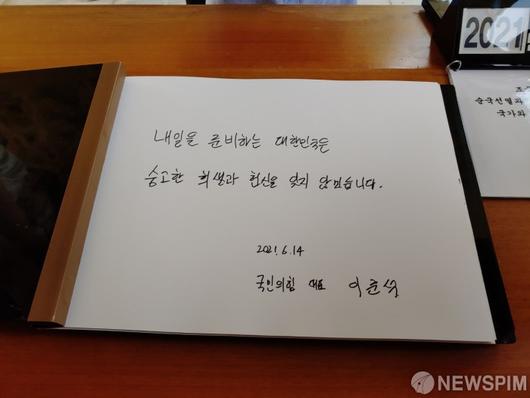 2021
내일을 준비하는 대한민국은
숭고한 희생과 헌신을 잊지 않겠습니다.
2021. 6. 14
국민의힘 대표 이준석
순국선열과
국가와
NEWSPIM